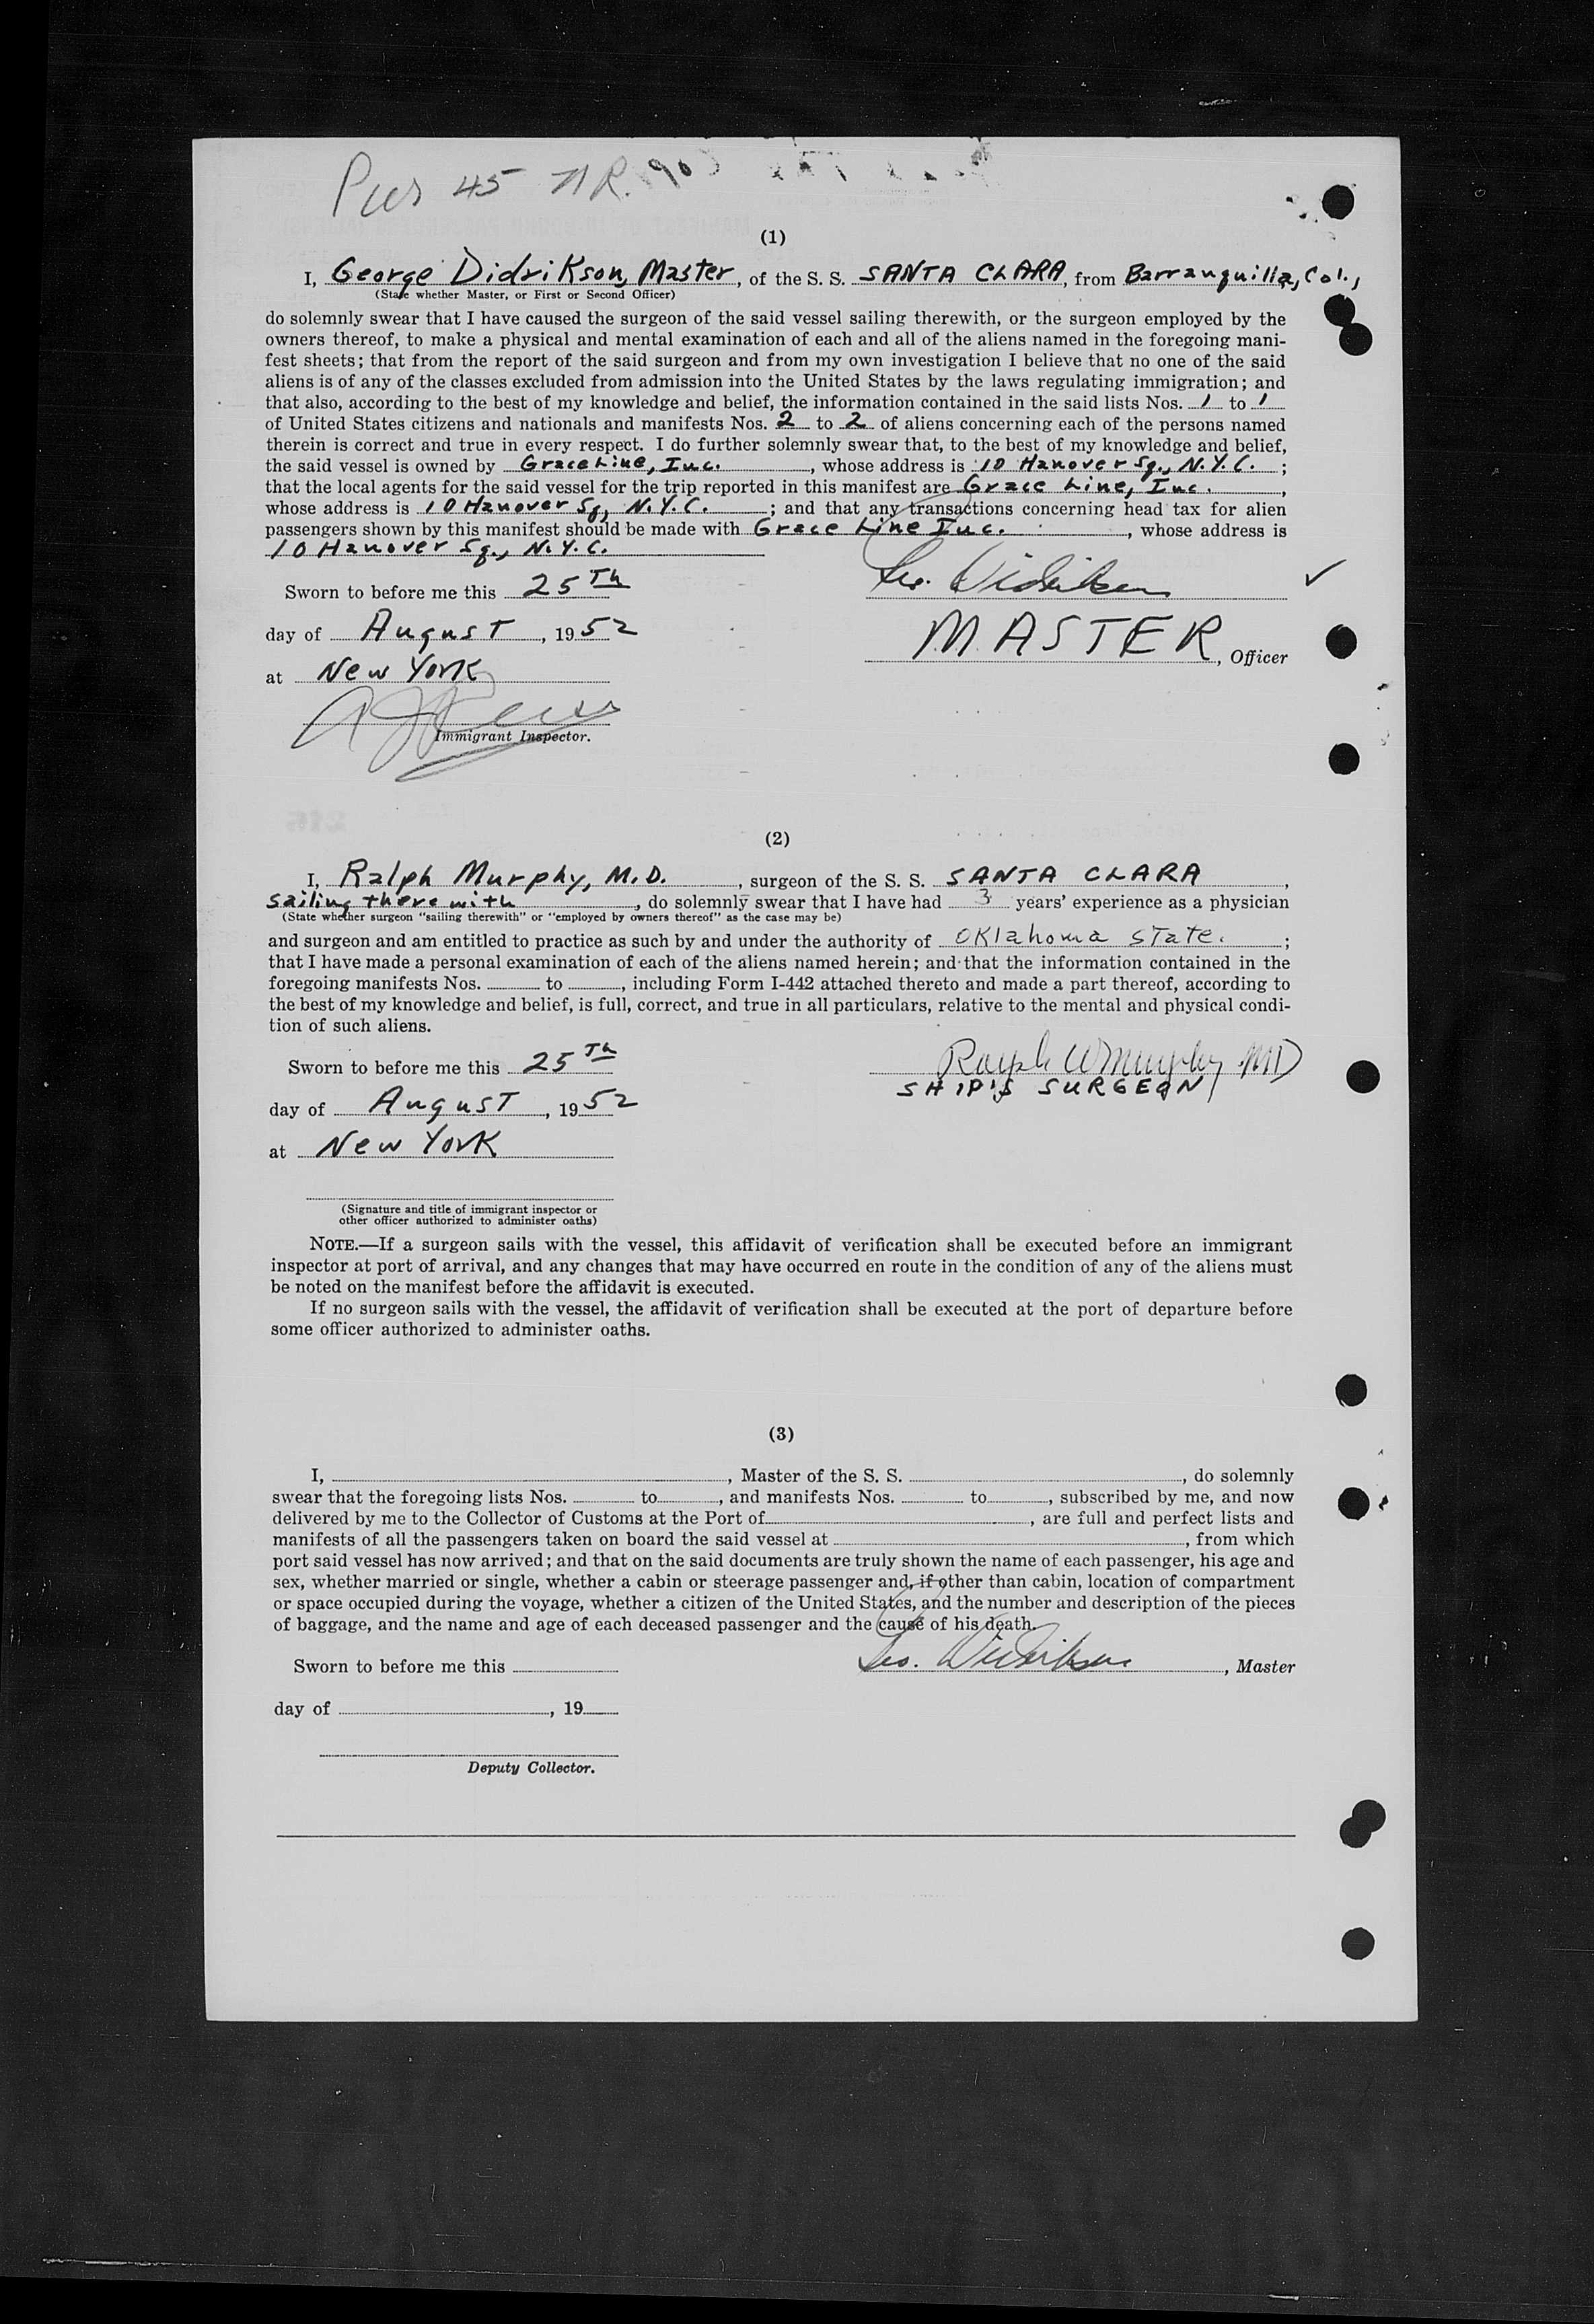 Pier 45 N.R.
(1)
I, George Didrikson, Master, of the S. S. SANTA CLARA, from Barranquilla, Col.,
(State whether Master, or First or Second Officer)
do solemnly swear that I have caused the surgeon of the said vessel sailing therewith, or the surgeon employed by the
owners thereof, to make a physical and mental examination of each and all of the aliens named in the foregoing mani-
fest sheets; that from the report of the said surgeon and from my own investigation I believe that no one of the said
aliens is of any of the classes excluded from admission into the United States by the laws regulating immigration; and
that also, according to the best of my knowledge and belief, the information contained in the said lists Nos. 1 to 1
of United States citizens and nationals and manifests Nos. 2 to 2 of aliens concerning each of the persons named
therein is correct and true in every respect. I do further solemnly swear that, to the best of my knowledge and belief,
the said vessel is owned by Grace Line, Inc., whose address is 10 Hanover Sq., N.Y.C. ;
that the local agents for the said vessel for the trip reported in this manifest are Grace Line, Inc.,
whose address is 10 Hanover Sq, N.Y.C. ; and that any transactions concerning head tax for alien
passengers shown by this manifest should be made with Grace Line Inc., whose address is
10 Hanover Sq., N.Y.C.
Sworn to before me this 25Th Geo. Didriksen ✓
day of August, 1952 MASTER, Officer
at New York
Immigrant Inspector.
(2)
I, Ralph Murphy, M.D., surgeon of the S. S. SANTA CLARA,
sailing there with, do solemnly swear that I have had 3 years' experience as a physician
(State whether surgeon "sailing therewith" or "employed by owners thereof" as the case may be)
and surgeon and am entitled to practice as such by and under the authority of Oklahoma State. ;
that I have made a personal examination of each of the aliens named herein; and that the information contained in the
foregoing manifests Nos. to , including Form I-442 attached thereto and made a part thereof, according to
the best of my knowledge and belief, is full, correct, and true in all particulars, relative to the mental and physical condi-
tion of such aliens.
Sworn to before me this 25Th Ralph W Murphy MD
SHIP'S SURGEON
day of August, 1952
at New York
(Signature and title of immigrant inspector or
other officer authorized to administer oaths)
NOTE.—If a surgeon sails with the vessel, this affidavit of verification shall be executed before an immigrant
inspector at port of arrival, and any changes that may have occurred en route in the condition of any of the aliens must
be noted on the manifest before the affidavit is executed.
If no surgeon sails with the vessel, the affidavit of verification shall be executed at the port of departure before
some officer authorized to administer oaths.
(3)
I, , Master of the S. S. , do solemnly
swear that the foregoing lists Nos. to , and manifests Nos. to , subscribed by me, and now
delivered by me to the Collector of Customs at the Port of , are full and perfect lists and
manifests of all the passengers taken on board the said vessel at , from which
port said vessel has now arrived; and that on the said documents are truly shown the name of each passenger, his age and
sex, whether married or single, whether a cabin or steerage passenger and, if other than cabin, location of compartment
or space occupied during the voyage, whether a citizen of the United States, and the number and description of the pieces
of baggage, and the name and age of each deceased passenger and the cause of his death.
Sworn to before me this Geo. Didriksen, Master
day of , 19
Deputy Collector.